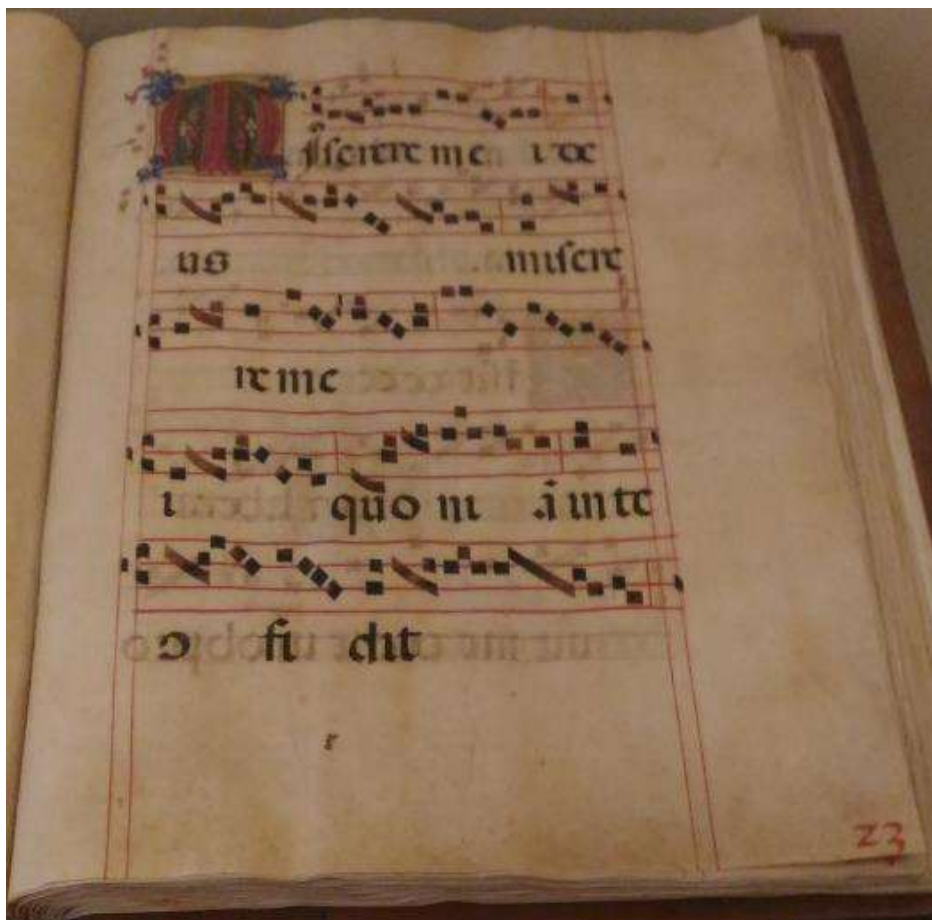 Miserere me i de
us miserere
re me
i quo ni ā in te
ↄ fi dit
23